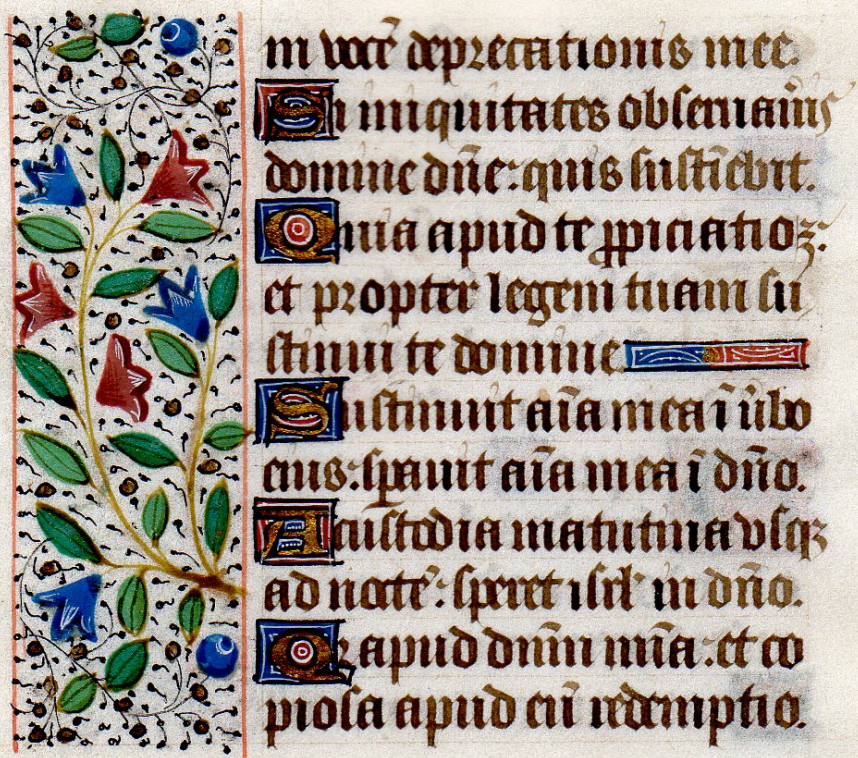 in vocē deprecationis mee.
Si iniquitates obseruaūis
domine dn̄e: quis sustīebit.
Quia apud te ꝓpiciatioꝫ:
et propter legem tuam su
stinui te domine
Sustinuit aīa mea ī ūbo
eius: sꝑauit aīa mea ī dn̄o.
A custodia matutina vsqꝫ
ad noctē: speret isrl̄ in dn̄o.
Qꝛ apud dn̄m mīa: et co
piosa apud eū redemptio.